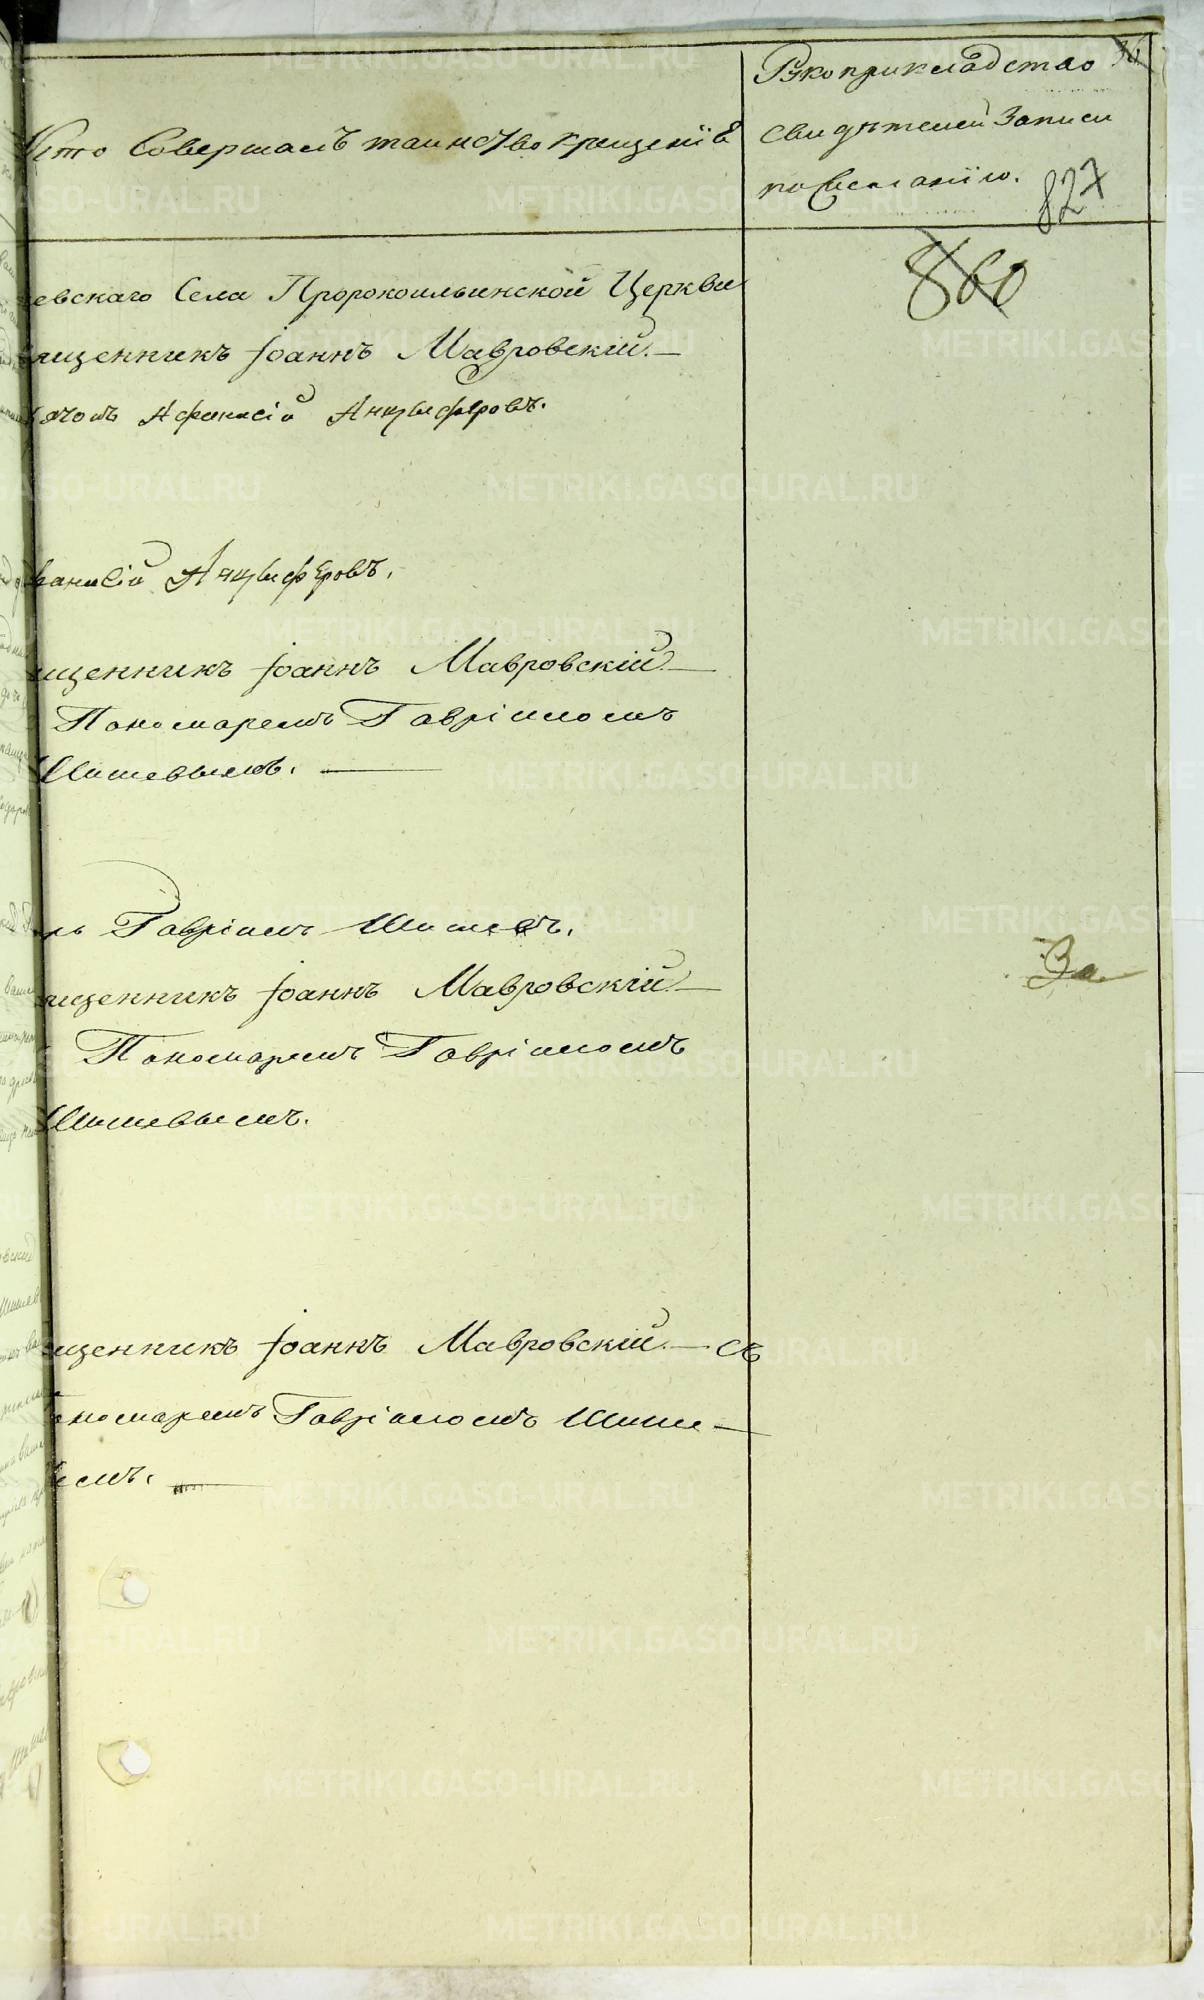 Кто Совершалъ таинство крещенія
Рукоприкладство
свидѣтелей Записи
по желанію.
827
860
евскаго Села Пророкоильинской Церкви
щенникъ Іоаннъ Мавровскій
Афанасій Анцыферовъ.
Анцыферовъ.
щенникъ Іоаннъ Мавровскій
Пономаремъ Гавріиломъ
Шишевымъ.
рь Гавріилъ Шишевъ.
За
щенникъ Іоаннъ Мавровскій
Пономаремъ Гавріиломъ
Шишевымъ.
щенникъ Іоаннъ Мавровскій съ
ономаремъ Гавріиломъ Шише
METRIKI.GASO-URAL.RU